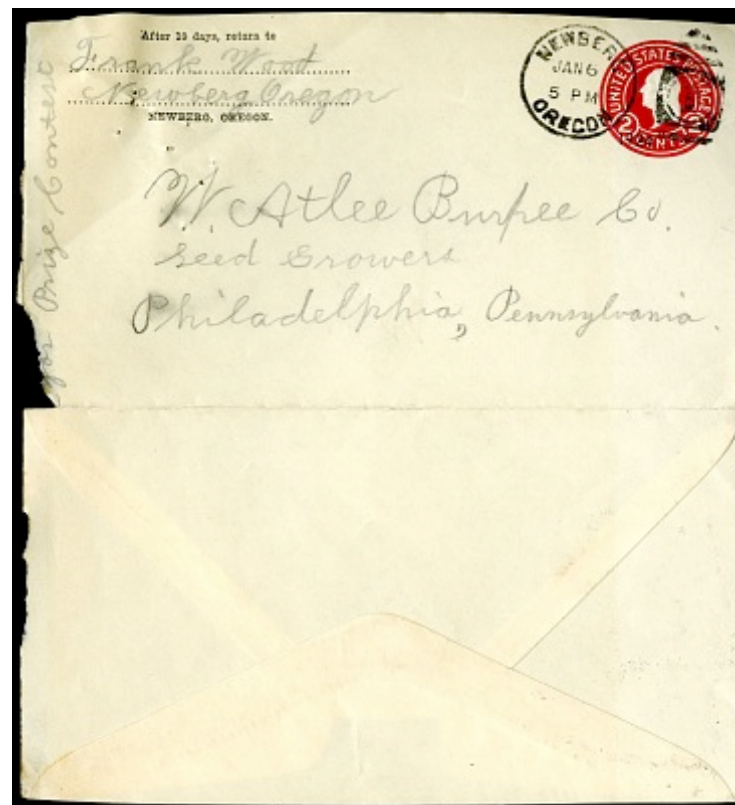 After 10 days, return to
Frank Wood
Newberg Oregon
NEWBERG, OREGON.
NEWBERG
JAN 6
5 PM
OREGON
UNITED STATES POSTAGE
2 CENTS 2
W. Atlee Burpee Co.
Seed Growers
Philadelphia, Pennsylvania.
for Prize Contest